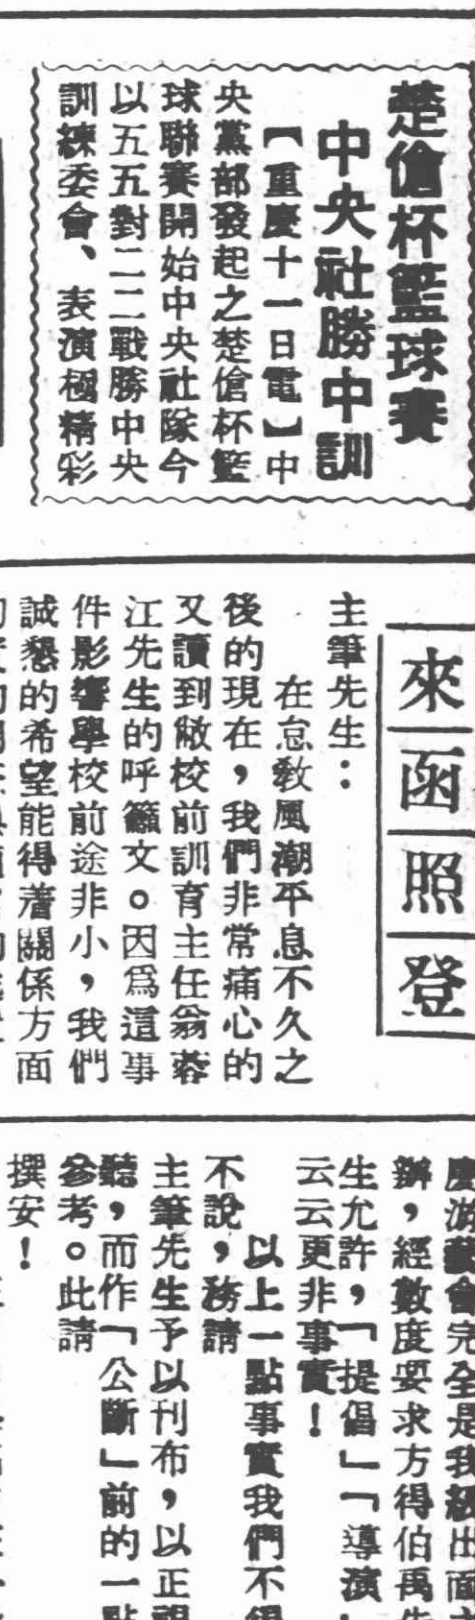 楚傖杯籃球賽
中央社勝中訓
【重慶十一日電】中
央黨部發起之楚傖杯籃
球聯賽開始中央社隊今
以五五對二二戰勝中央
訓練委會、表演極精彩
來函照登
主筆先生：
在怠教風潮平息不久之
後的現在，我們非常痛心的
又讀到敝校前訓育主任翁蓉
江先生的呼籲文。因爲這事
件影響學校前途非小，我們
誠懇的希望能得着關係方面
會完全是我級出面
辦，經數度要求方得伯禹先
生允許，「提倡」「導演
云云更非事實！
以上一點事實我們不得
不說，務請
主筆先生予以刊布，以正視
聽，而作「公斷」前的一點
參考。此請
撰安！